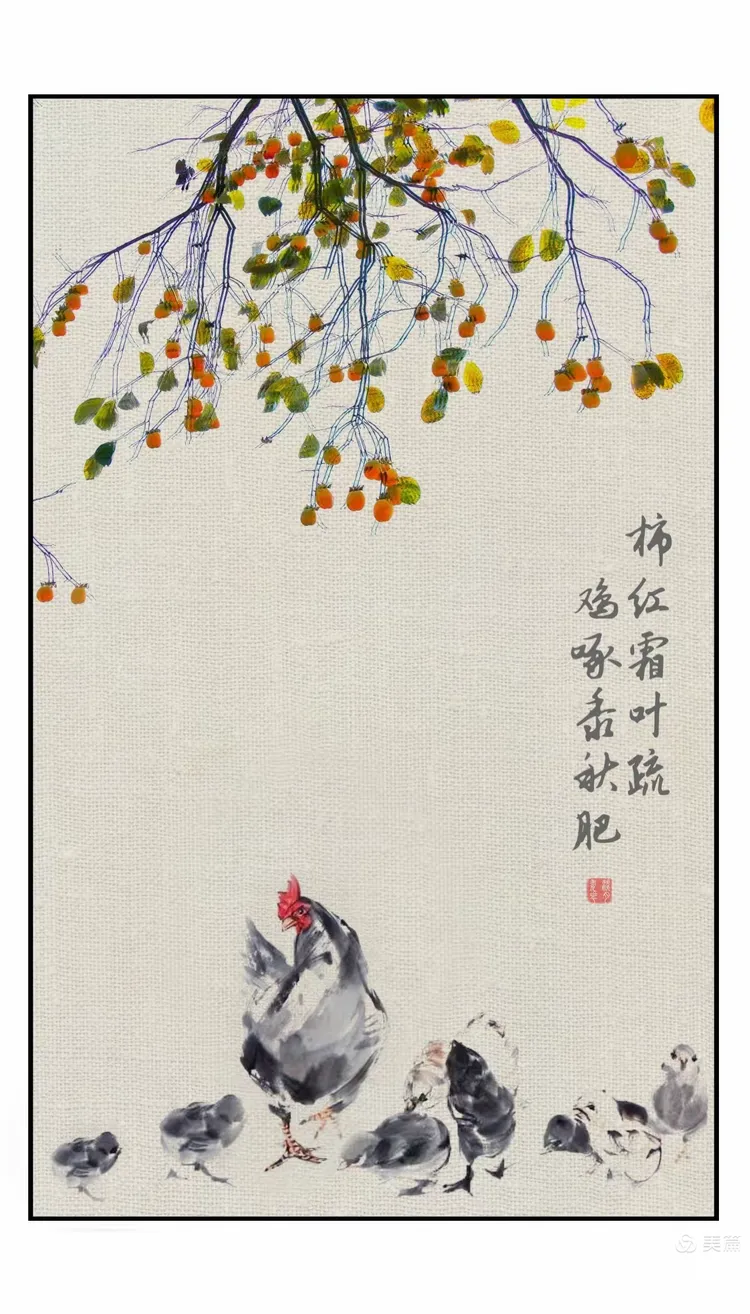 柿红霜叶疏
鸡啄黍秋肥
美篇